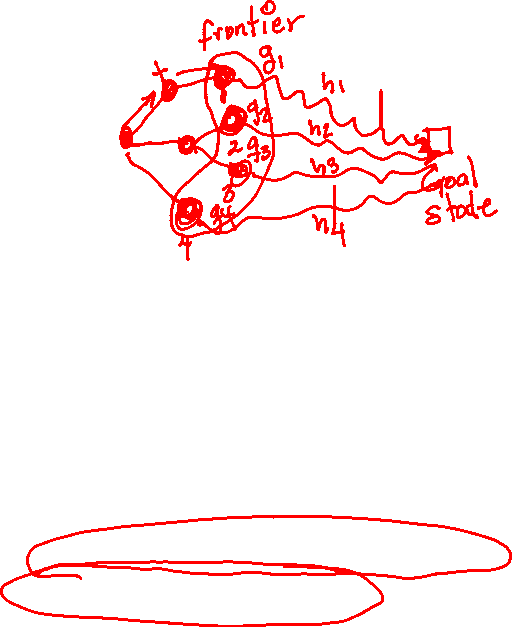 frontier
g1
h1
g2
h2
2 g3
h3
3
g4
h4
4
goal
state